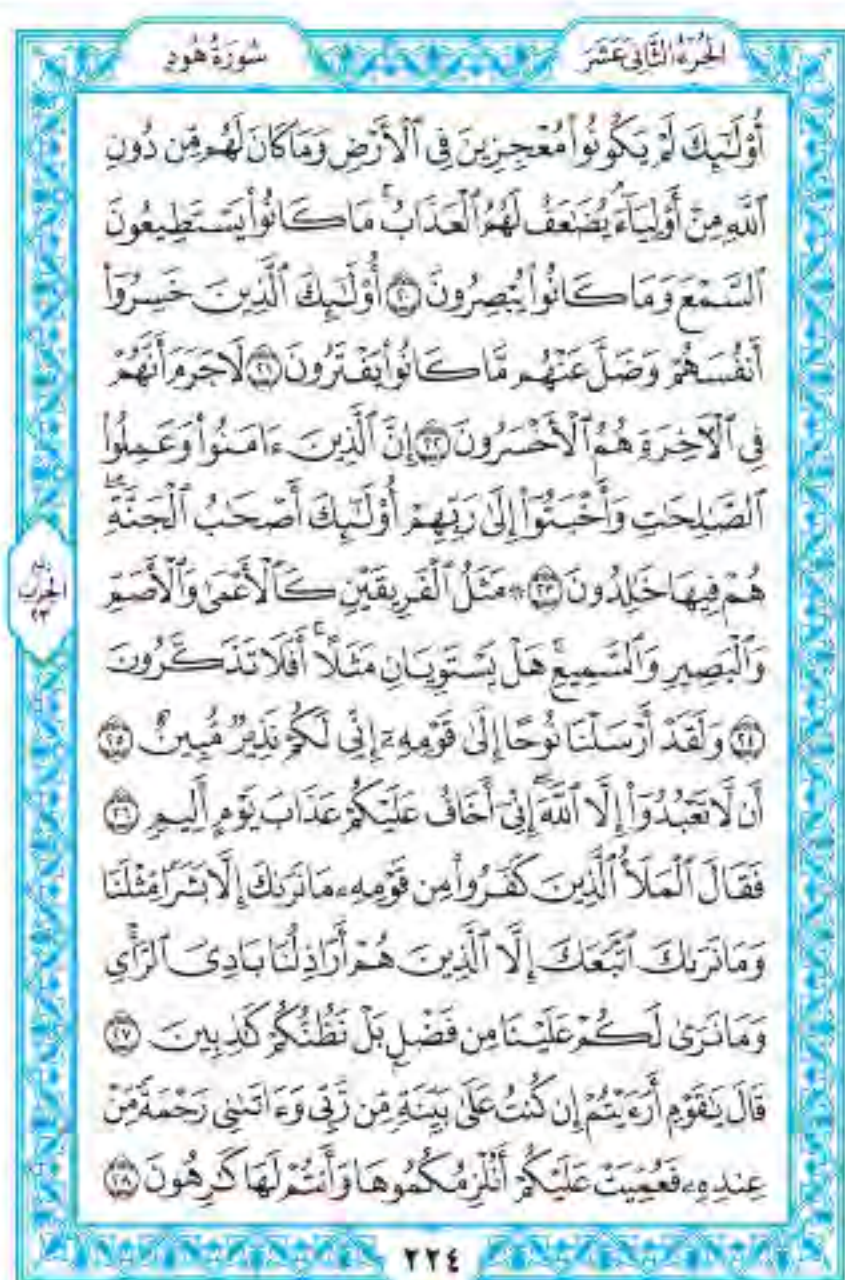 الجزء الثاني عشر
سورة هود
أُوْلَـٰٓئِكَ لَمْ يَكُونُوا۟ مُعْجِزِينَ فِى ٱلْأَرْضِ وَمَا كَانَ لَهُم مِّن دُونِ
ٱللَّهِ مِنْ أَوْلِيَآءَ ۘ يُضَـٰعَفُ لَهُمُ ٱلْعَذَابُ ۚ مَا كَانُوا۟ يَسْتَطِيعُونَ
ٱلسَّمْعَ وَمَا كَانُوا۟ يُبْصِرُونَ ٢٠ أُو۟لَـٰٓئِكَ ٱلَّذِينَ خَسِرُوٓا۟
أَنفُسَهُمْ وَضَلَّ عَنْهُم مَّا كَانُوا۟ يَفْتَرُونَ ٢١ لَا جَرَمَ أَنَّهُمْ
فِى ٱلْـَٔاخِرَةِ هُمُ ٱلْأَخْسَرُونَ ٢٢ إِنَّ ٱلَّذِينَ ءَامَنُوا۟ وَعَمِلُوا۟
ٱلصَّـٰلِحَـٰتِ وَأَخْبَتُوٓا۟ إِلَىٰ رَبِّهِمْ أُو۟لَـٰٓئِكَ أَصْحَـٰبُ ٱلْجَنَّةِ ۖ
هُمْ فِيهَا خَـٰلِدُونَ ٢٣ ۞ مَثَلُ ٱلْفَرِيقَيْنِ كَٱلْأَعْمَىٰ وَٱلْأَصَمِّ
ربع
الحزب
٢٣
وَٱلْبَصِيرِ وَٱلسَّمِيعِ ۚ هَلْ يَسْتَوِيَانِ مَثَلًا ۚ أَفَلَا تَذَكَّرُونَ
٢٤ وَلَقَدْ أَرْسَلْنَا نُوحًا إِلَىٰ قَوْمِهِۦٓ إِنِّى لَكُمْ نَذِيرٌ مُّبِينٌ ٢٥
أَن لَّا تَعْبُدُوٓا۟ إِلَّا ٱللَّهَ ۖ إِنِّىٓ أَخَافُ عَلَيْكُمْ عَذَابَ يَوْمٍ أَلِيمٍ ٢٦
فَقَالَ ٱلْمَلَأُ ٱلَّذِينَ كَفَرُوا۟ مِن قَوْمِهِۦ مَا نَرَىٰكَ إِلَّا بَشَرًا مِّثْلَنَا
وَمَا نَرَىٰكَ ٱتَّبَعَكَ إِلَّا ٱلَّذِينَ هُمْ أَرَاذِلُنَا بَادِىَ ٱلرَّأْىِ
وَمَا نَرَىٰ لَكُمْ عَلَيْنَا مِن فَضْلٍۭ بَلْ نَظُنُّكُمْ كَـٰذِبِينَ ٢٧
قَالَ يَـٰقَوْمِ أَرَءَيْتُمْ إِن كُنتُ عَلَىٰ بَيِّنَةٍ مِّن رَّبِّى وَءَاتَىٰنِى رَحْمَةً مِّنْ
عِندِهِۦ فَعُمِّيَتْ عَلَيْكُمْ أَنُلْزِمُكُمُوهَا وَأَنتُمْ لَهَا كَـٰرِهُونَ ٢٨
٢٢٤